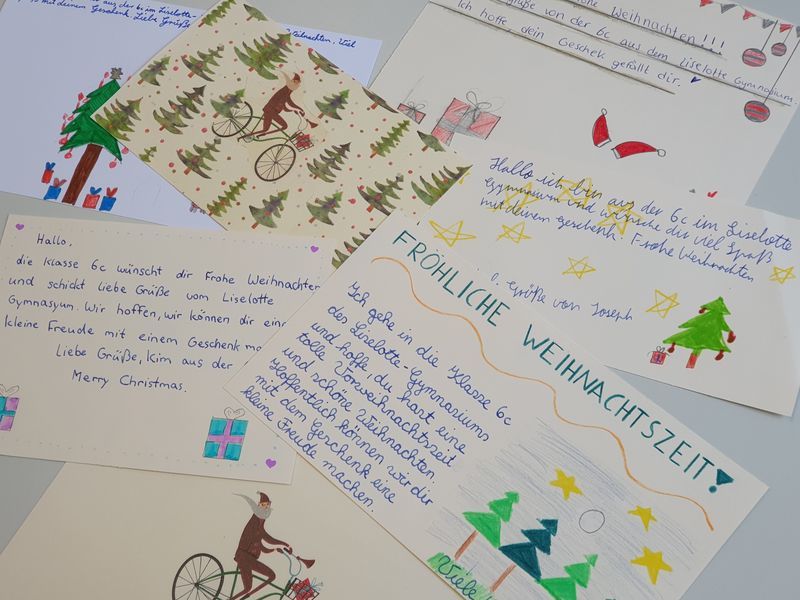 aus der 6c im Liselotte-
mit deinem Geschenk. Liebe Grüße
Weihnachten, Viel
Weihnachten!!!
Grüße von der 6c aus dem Liselotte Gymnasium.
Ich hoffe, dein Geschek gefällt dir.
Hallo ich bin aus der 6c im Liselotte
Gymnasium und wünsche dir viel Spaß
mit deinem Geschenk. Frohe Weihnachten
Grüße von Joseph
Hallo,
die Klasse 6c wünscht dir Frohe Weihnachten
und schickt liebe Grüße vom Liselotte
Gymnasyum. Wir hoffen, wir können dir
kleine Freude mit einem Geschenk
Liebe Grüße, Kim aus der
Merry Christmas.
FRÖHLICHE WEIHNACHTSZEIT!
Ich gehe in die Klasse 6c
des Liselotte-Gymnasiums
und hoffe, du hast eine
tolle Vorweihnachtszeit
und schöne Weihnachten.
Hoffentlich können wir dir
mit dem Geschenk eine
kleine Freude machen.
Viele